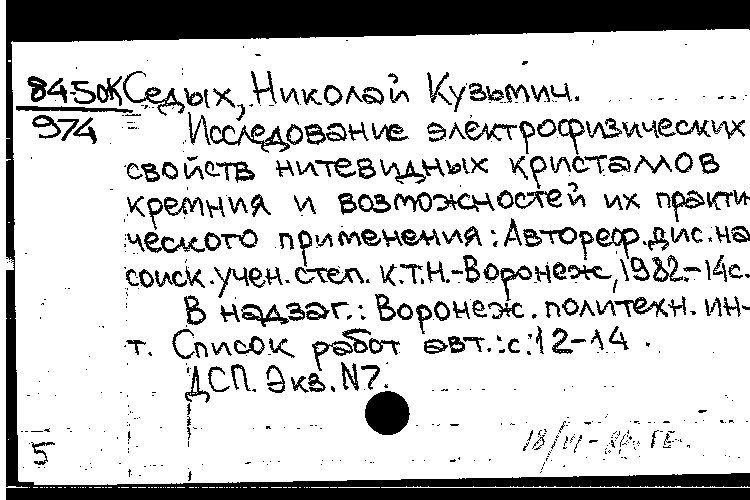 84-5ОК Седых, Николай Кузьмич.
974 Исследование электрофизических
свойств нитевидных кристаллов
кремния и возможностей их практи-
ческого применения: Автореф.дис.на
соиск.учен.степ. к.т.н.-Воронеж, 1982.-14с.
В надзаг.: Воронеж. политехн. ин-
т. Список работ авт.:с.12-14.
ДСП. Экз. N7.
5
18/VI-